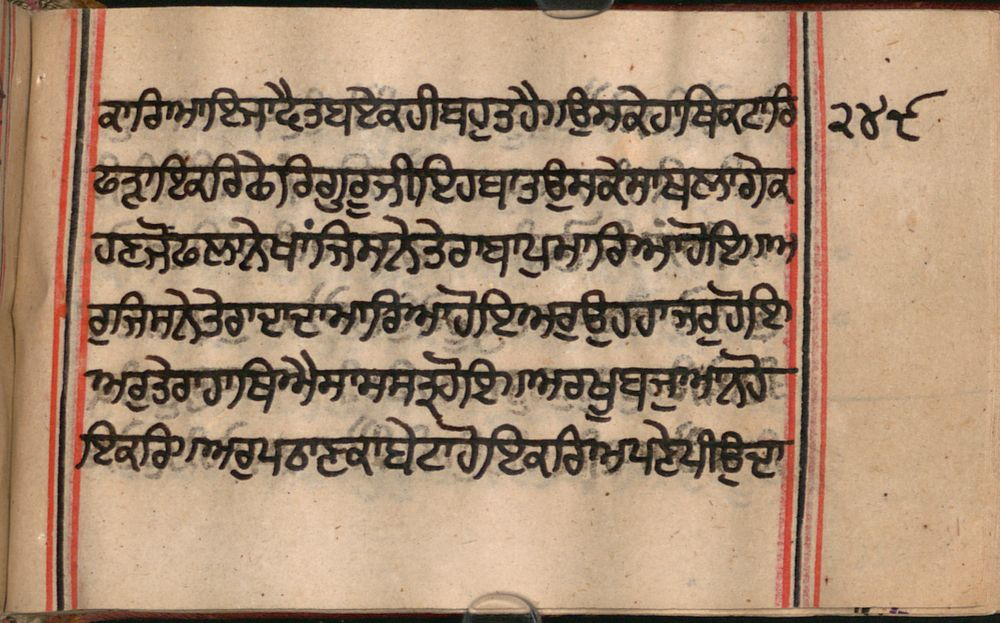 ਕਾਰਿਆ ਇਜਾਫੈ ਤਬ ਏਕ ਹੀ ਬਹੁਤ ਹੈ। ਉਸਕੇ ਹਾਥਿ ਕਟਾਰਿ
ਫੜਾਇ ਕਰਿ ਫੇਰਿ ਗੁਰੂ ਜੀ ਇਹ ਬਾਤ ਉਸਕੇ ਸਾਥ ਲਾਗੇ ਕ
ਹਣ ਜੋ ਫਲਾਨੇ ਖਾਂ ਜਿਸਨੇ ਤੇਰਾ ਬਾਪੁ ਮਾਰਿਆ ਹੋਇ। ਅ
ਰੁ ਜਿਸਨੇ ਤੇਰਾ ਦਾਦਾ ਮਾਰਿਆ ਹੋਇ ਅਰੁ ਉਹ ਹਾਜਰੁ ਹੋਇ
ਅਰੁ ਤੇਰਾ ਹਾਥਿ ਐਸਾ ਸਸਤ੍ਰ ਹੋਇ। ਅਰ ਖੂਬ ਜੁਆਨ ਹੋ
ਇ ਕਰਿ। ਅਰੁ ਪਠਾਣ ਕਾ ਬੇਟਾ ਹੋਇ ਕਰਿ ਅਪਣੇ ਪੀਊ ਦਾ
੨੪੯